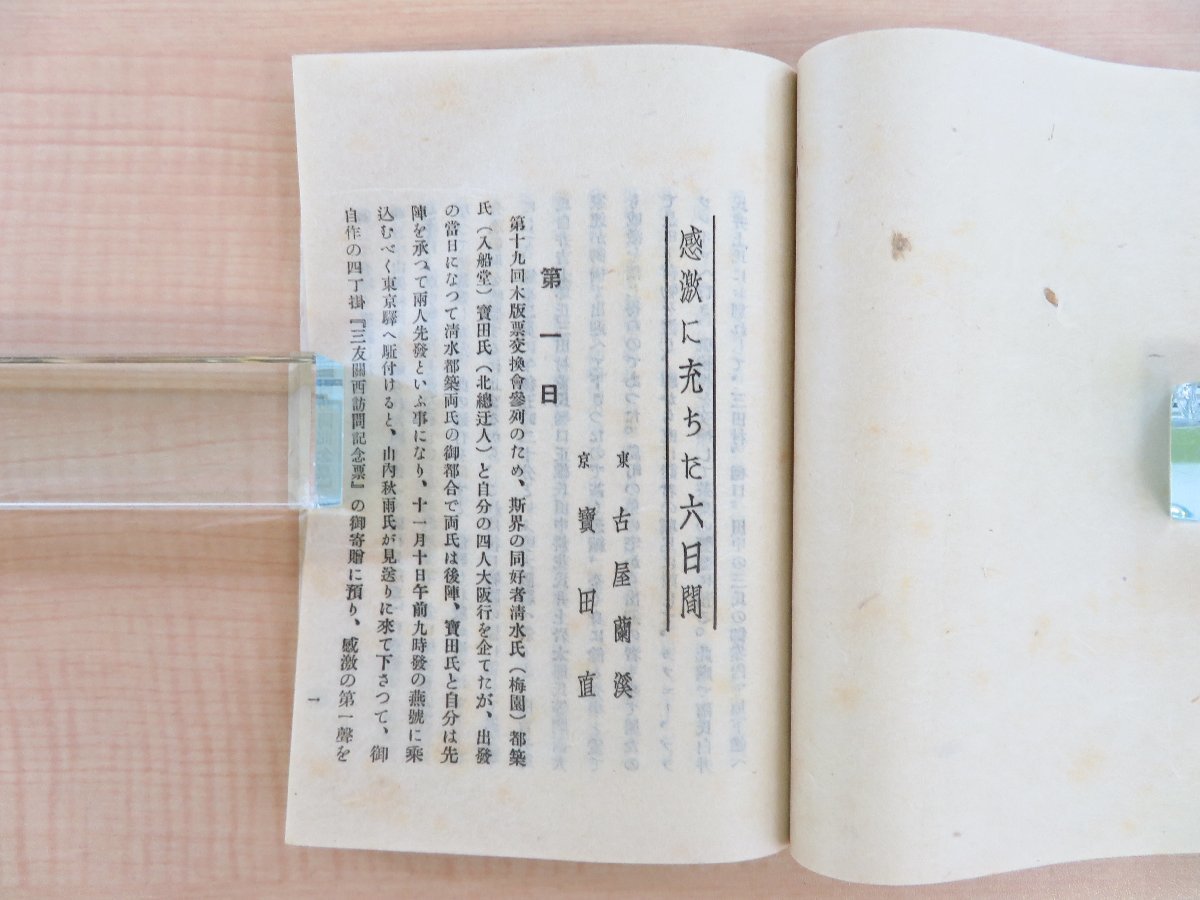 感激に充ちた六日間
東京
古屋蘭溪
寶田直
第一日
第十九回木版票交換會參列のため、斯界の同好者清水氏（梅園）都築
氏（入船堂）寶田氏（北總迂人）と自分の四人大阪行を企てたが、出發
の當日になつて清水都築両氏の御都合で両氏は後陣、寶田氏と自分は先
陣を承つて兩人先發といふ事になり、十一月十日午前九時發の燕號に乘
込むべく東京驛へ駈付けると、山内秋雨氏が見送りに來て下さつて、御
自作の四丁掛『三友關西訪問記念票』の御寄贈に預り、感激の第一聲を
一